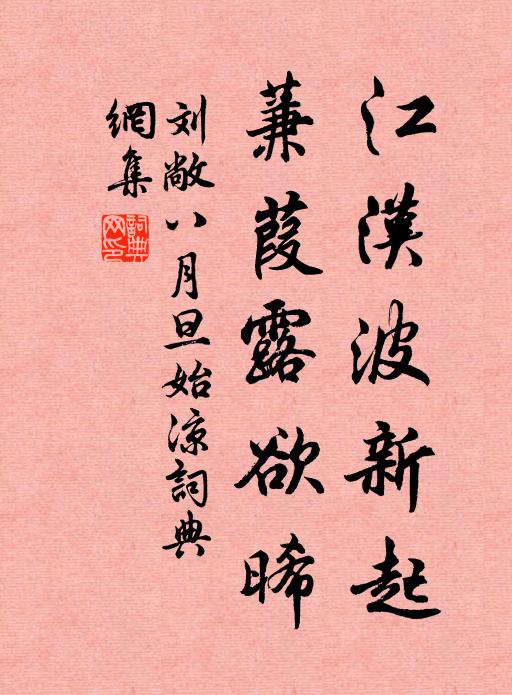 江漢波新起
蒹葭露欲晞
刘敞八月旦始涼詞典
網集
詞典网印